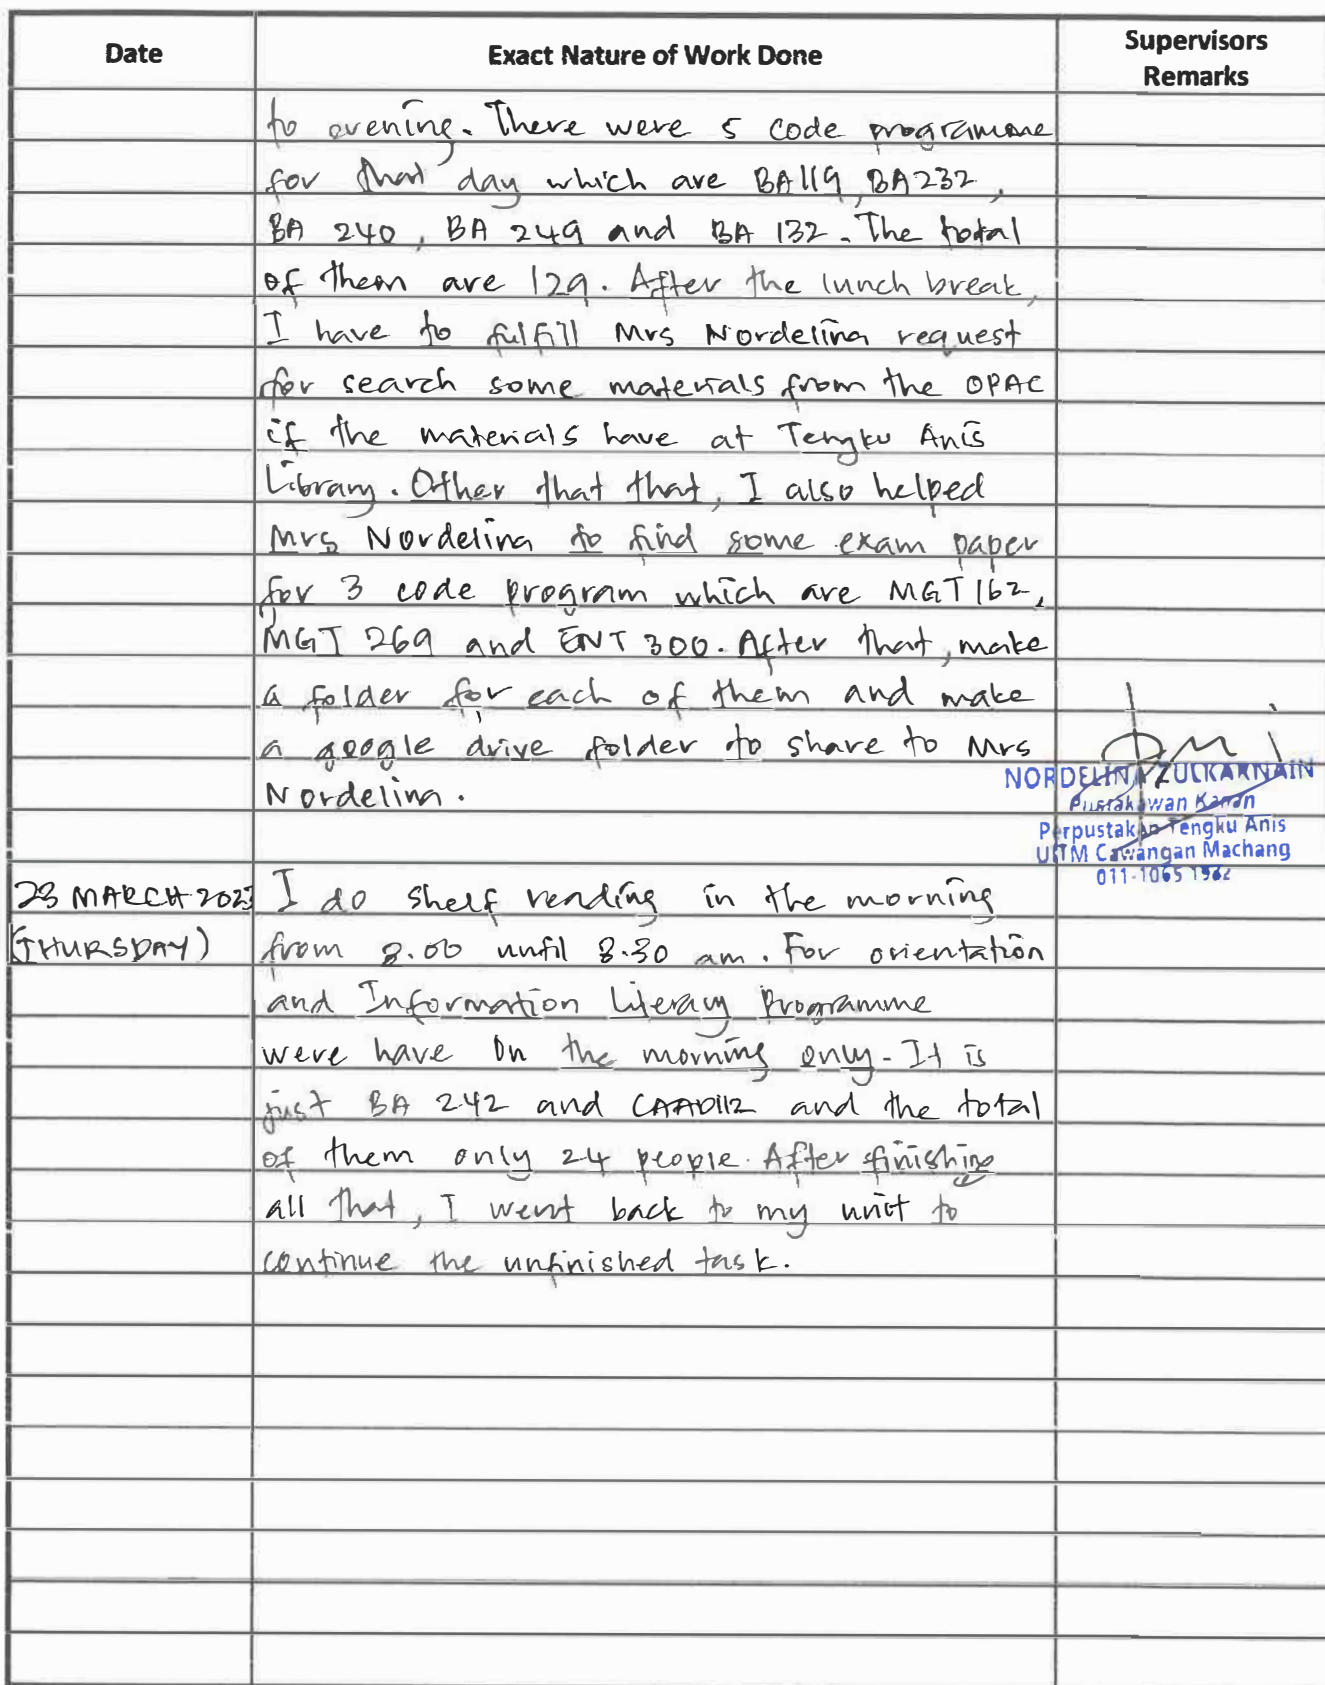 Date
Exact Nature of Work Done
Supervisors
Remarks
to evening. There were 5 code programme
for that day which are BA119, BA232,
BA 240, BA 249 and BA 132. The total
of them are 129. After the lunch break,
I have to fulfill Mrs Nordelina request
for search some materials from the OPAC
if the materials have at Tengku Anis
Library. Other that that, I also helped
Mrs Nordelina to find some exam paper
for 3 code program which are MGT 162,
MGT 269 and ENT 300. After that, make
a folder for each of them and make
a google drive folder to share to Mrs
Nordelina.
NORDELINA ZULKARNAIN
Pustakawan Kanan
Perpustakaan Tengku Anis
UiTM Cawangan Machang
011-1065 1962
23 MARCH 2023
(THURSDAY)
I do shelf reading in the morning
from 8.00 until 8.30 am. For orientation
and Information Literacy Programme
were have on the morning only. It is
just BA 242 and CAAD112 and the total
of them only 24 people. After finishing
all that, I went back to my unit to
continue the unfinished task.